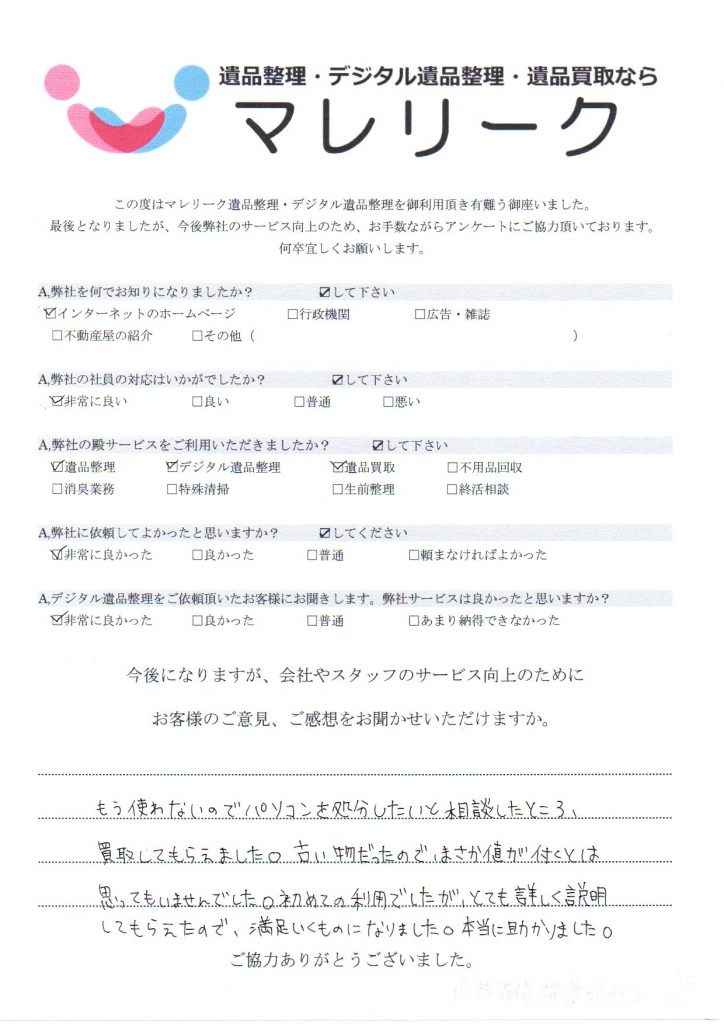 遺品整理・デジタル遺品整理・遺品買取なら
マレリーク
この度はマレリーク遺品整理・デジタル遺品整理を御利用頂き有難う御座いました。
最後となりましたが、今後弊社のサービス向上のため、お手数ながらアンケートにご協力頂いております。
何卒宜しくお願いします。
A,弊社を何でお知りになりましたか? ☑して下さい
☑インターネットのホームページ □行政機関 □広告・雑誌
□不動産屋の紹介 □その他（ ）
A,弊社の社員の対応はいかがでしたか? ☑して下さい
☑非常に良い □良い □普通 □悪い
A,弊社の殿サービスをご利用いただきましたか? ☑して下さい
☑遺品整理 ☑デジタル遺品整理 ☑遺品買取 □不用品回収
□消臭業務 □特殊清掃 □生前整理 □終活相談
A,弊社に依頼してよかったと思いますか? ☑してください
☑非常に良かった □良かった □普通 □頼まなければよかった
A,デジタル遺品整理をご依頼頂いたお客様にお聞きします。弊社サービスは良かったと思いますか?
☑非常に良かった □良かった □普通 □あまり納得できなかった
今後になりますが、会社やスタッフのサービス向上のために
お客様のご意見、ご感想をお聞かせいただけますか。
もう使わないのでパソコンを処分したいと相談したところ、
買取してもらえました。古い物だったので、まさか値が付くとは
思ってもいませんでした。初めての利用でしたが、とても詳しく説明
してもらえたので、満足いくものになりました。本当に助かりました。
ご協力ありがとうございました。